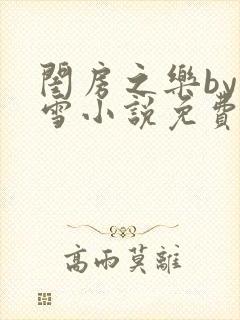 閨房之樂by
雪小說免費
高雨莫離